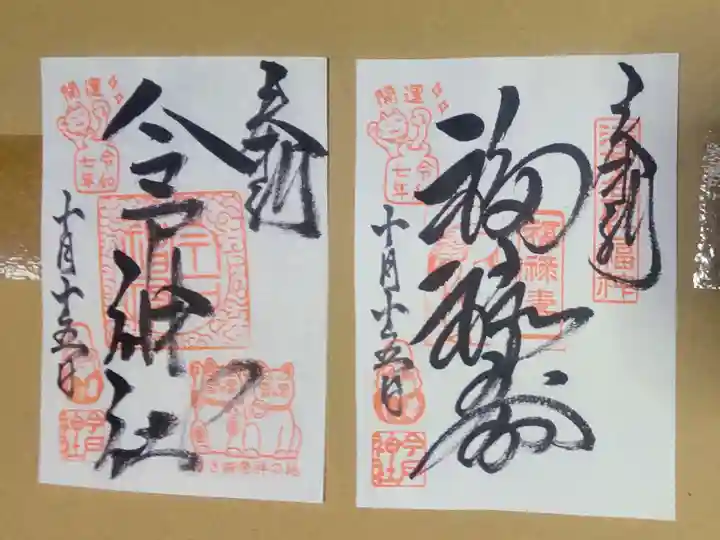 奉拝
今戸神社
開運
令和
七年
十月十五日
今戸
神社
招き猫発祥の地
奉拝
福禄寿
福禄寿
開運
令和
七年
十月十五日
今戸
神社